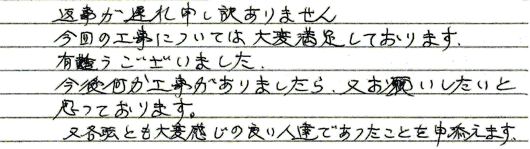 返事が遅れ申し訳ありません
今回の工事については大変満足しております.
有難うございました.
今後何か工事がありましたら、又お願いしたいと
思っております。
又各張とも大変感じの良い人達であったことを申添えます.